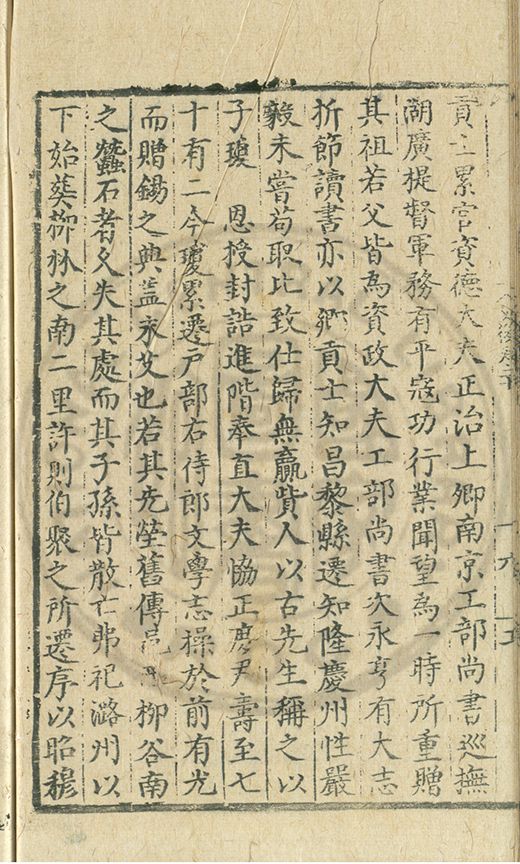 貢士累官資德大夫正治上卿南京工部尚書巡撫
湖廣提督軍務有平寇功行業聞望為一時所重贈
其祖若父皆為資政大夫工部尚書次永亨有大志
折節讀書亦以鄉貢士知昌黎縣遷知隆慶州性嚴
毅未嘗苟取比致仕歸無贏貲人以古先生稱之以
子瓊　恩授封誥進階奉直大夫協正庶尹壽至七
十有二今瓊累遷戶部右侍郎文學志操於前有光
而贈錫之典盖未艾也若其先塋舊傳邑柳谷南
之蠶石者久失其處而其子孫皆散亡弗祀潞州以
下始葬柳林之南二里許則伯聚之所遷序以昭穆